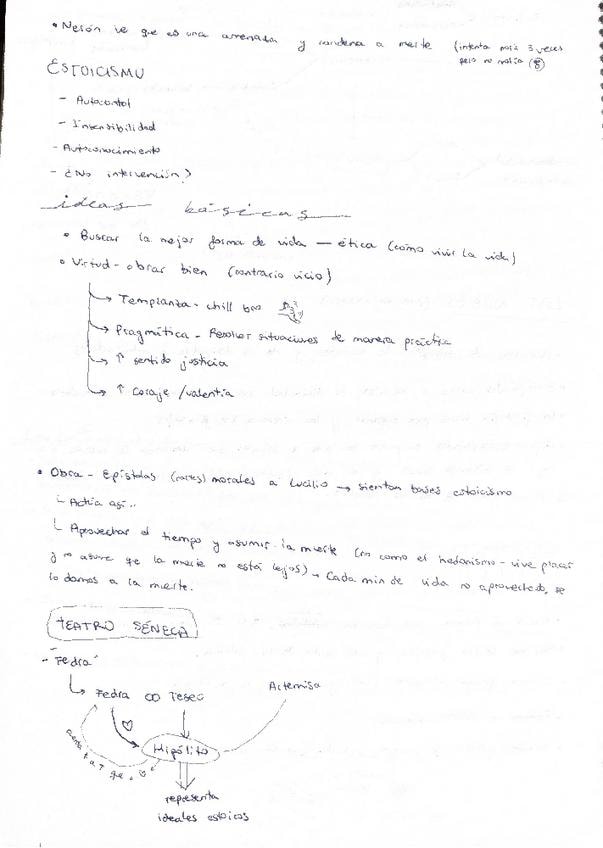 • Nerón ve que es una amenaza y condena a muerte (intenta 3 veces
pero no moría
ESTOICISMO
- Autocontrol
- Insensibilidad
- Autoconocimiento
- ¿No intervención?
ideas básicas
• Buscar la mejor forma de vida — ética (cómo vivir la vida)
• Virtud - obrar bien (contrario vicio)
→ Templanza - chill bro
→ Pragmática - Resolver situaciones de manera práctica
→ ↑ sentido justicia
→ ↑ coraje / valentía
• Obra - Epístolas (cartas) morales a Lucilio → sientan bases estoicismo
└ Actúa así..
└ Aprovechar el tiempo y asumir la muerte (no como el hedonismo - vive placer
y no asume que la muerte no está lejos) → Cada min de vida no aprovechado, se
lo damos a la muerte.
TEATRO SÉNECA
- "Fedra"
→ Fedra ∞ Teseo
Artemisa
♡
Hipólito
representa
ideales estoicos